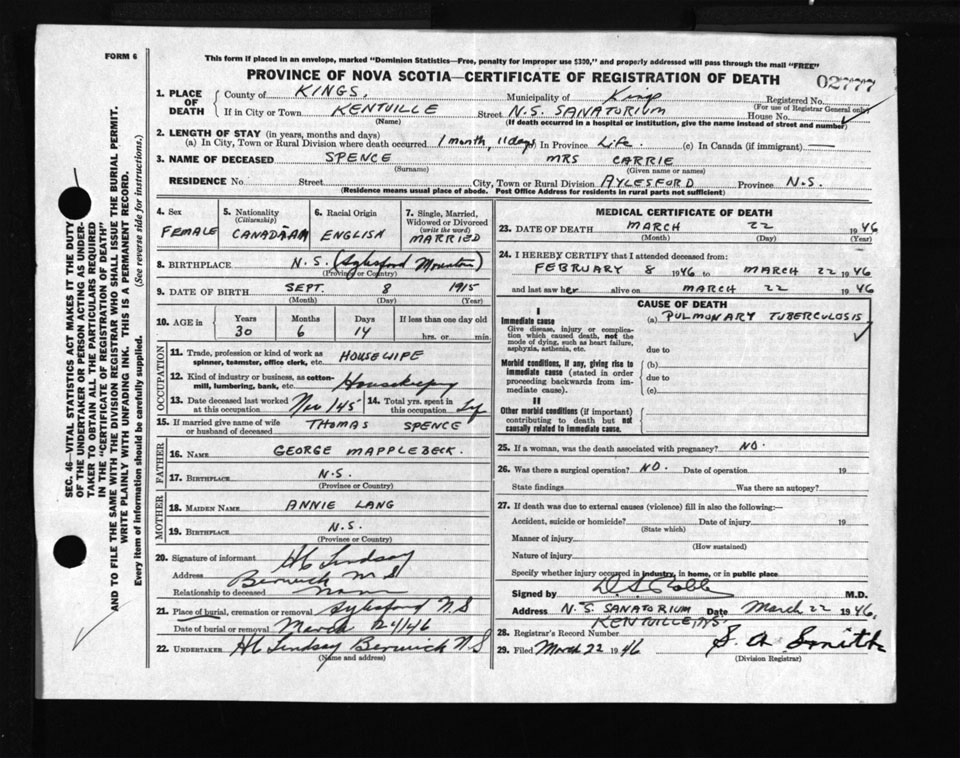 FORM 6
This form if placed in an envelope, marked "Dominion Statistics—Free, penalty for improper use $300," and properly addressed will pass through the mail "FREE"
PROVINCE OF NOVA SCOTIA—CERTIFICATE OF REGISTRATION OF DEATH
02777
1. PLACE OF DEATH
County of KINGS. Municipality of Kings Registered No.
(For use of Registrar General only)
If in City or Town KENTVILLE Street N.S. SANATORIUM House No.
(Name) (If death occurred in a hospital or institution, give the name instead of street and number)
2. LENGTH OF STAY (in years, months and days)
(a) In City, Town or Rural Division where death occurred 1 month, 11 days In Province Life. (c) In Canada (if immigrant) —
3. NAME OF DECEASED SPENCE MRS CARRIE
(Surname) (Given name or names)
RESIDENCE No. Street City, Town or Rural Division AYLESFORD Province N.S.
(Residence means usual place of abode. Post Office Address for residents in rural parts not sufficient)
4. Sex FEMALE
5. Nationality (Citizenship) CANADIAN
6. Racial Origin ENGLISH
7. Single, Married, Widowed or Divorced (write the word) MARRIED
8. BIRTHPLACE N.S. (Aylesford Mountain)
(Province or Country)
9. DATE OF BIRTH SEPT. 8 1915
(Month) (Day) (Year)
10. AGE in Years Months Days If less than one day old
30 6 14 hrs. or min.
OCCUPATION
11. Trade, profession or kind of work as spinner, teamster, office clerk, etc. HOUSEWIFE
12. Kind of industry or business, as cotton-mill, lumbering, bank, etc. Housekeeping
13. Date deceased last worked at this occupation Nov/45 14. Total yrs. spent in this occupation
15. If married give name of wife or husband of deceased THOMAS SPENCE
FATHER
16. NAME GEORGE MAPPLEBECK.
17. BIRTHPLACE N.S.
(Province or Country)
MOTHER
18. MAIDEN NAME ANNIE LANG
19. BIRTHPLACE N.S.
(Province or Country)
20. Signature of informant HC Lindsay
Address Berwick N S
Relationship to deceased None
21. Place of burial, cremation or removal Aylesford N.S
Date of burial or removal March 24/46
22. UNDERTAKER HC Lindsay Berwick N S
(Name and address)
MEDICAL CERTIFICATE OF DEATH
23. DATE OF DEATH MARCH 22 1946
(Month) (Day) (Year)
24. I HEREBY CERTIFY that I attended deceased from:
FEBRUARY 8 1946 to MARCH 22 1946
and last saw her alive on MARCH 22 1946
CAUSE OF DEATH
I
Immediate cause (a) PULMONARY TUBERCULOSIS
Give disease, injury or complication which caused death, not the mode of dying, such as heart failure, asphyxia, asthenia, etc.
due to
Morbid conditions, if any, giving rise to immediate cause (stated in order proceeding backwards from immediate cause).
(b)
due to
(c)
II
Other morbid conditions (if important) contributing to death but not causally related to immediate cause.
25. If a woman, was the death associated with pregnancy? NO.
26. Was there a surgical operation? NO. Date of operation 19
State findings Was there an autopsy?
27. If death was due to external causes (violence) fill in also the following:—
Accident, suicide or homicide? Date of injury 19
(State which)
Manner of injury
(How sustained)
Nature of injury
Specify whether injury occurred in industry, in home, or in public place
Signed by M.D.
Address N.S. SANATORIUM Date March 22 1946.
KENTVILLE, N.S.
28. Registrar's Record Number
29. Filed March 22 1946 S. A. Smith
(Division Registrar)
SEC. 46—VITAL STATISTICS ACT MAKES IT THE DUTY
OF THE UNDERTAKER OR PERSON ACTING AS UNDER-
TAKER TO OBTAIN ALL THE PARTICULARS REQUIRED
IN THE "CERTIFICATE OF REGISTRATION OF DEATH"
AND TO FILE THE SAME WITH THE DIVISION REGISTRAR WHO SHALL ISSUE THE BURIAL PERMIT.
WRITE PLAINLY WITH UNFADING INK. THIS IS A PERMANENT RECORD.
Every item of information should be carefully supplied. (See reverse side for instructions.)